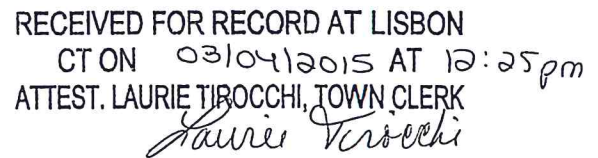 RECEIVED FOR RECORD AT LISBON
CT ON 03/04/2015 AT 12:25pm
ATTEST. LAURIE TIROCCHI, TOWN CLERK
Laurie Tirocchi